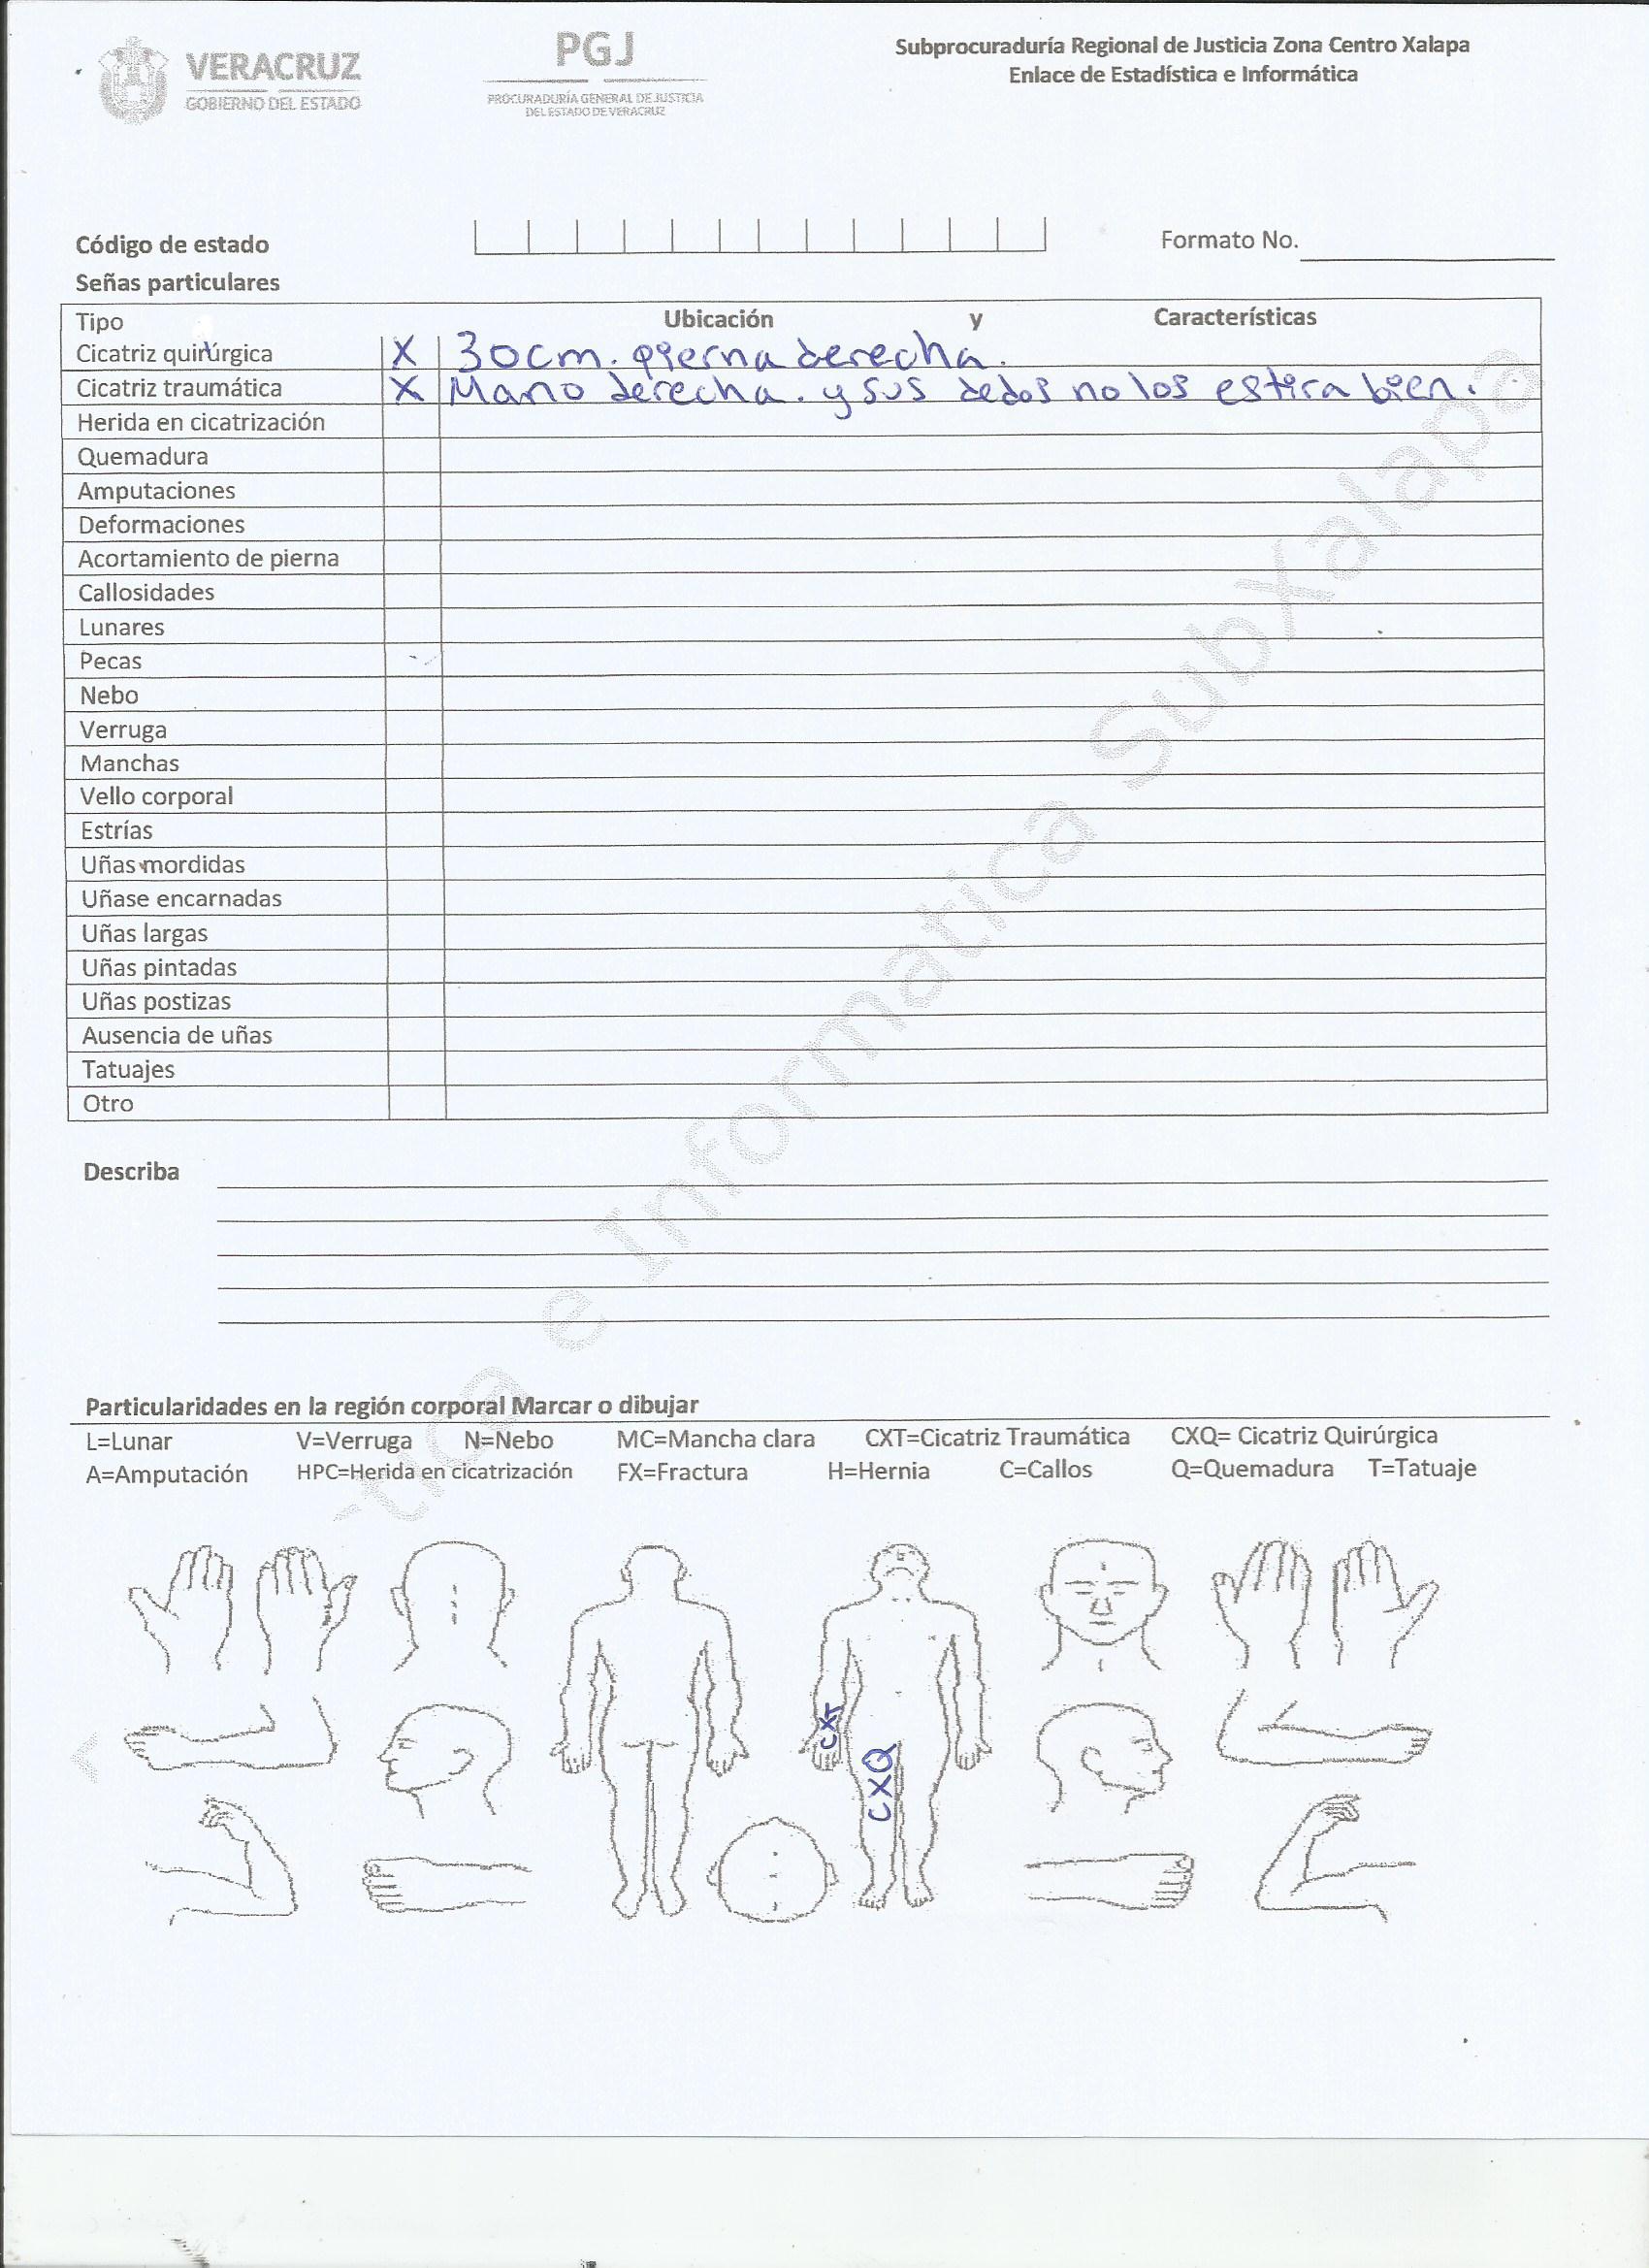 VERACRUZ
GOBIERNO DEL ESTADO
PGJ
PROCURADURÍA GENERAL DE JUSTICIA
DEL ESTADO DE VERACRUZ
Subprocuraduría Regional de Justicia Zona Centro Xalapa
Enlace de Estadística e Informática
Código de estado
Formato No.
Señas particulares
Tipo Ubicación y Características
Cicatriz quirúrgica X 30cm. pierna derecha.
Cicatriz traumática X Mano derecha. y sus dedos no los estira bien.
Herida en cicatrización
Quemadura
Amputaciones
Deformaciones
Acortamiento de pierna
Callosidades
Lunares
Pecas
Nebo
Verruga
Manchas
Vello corporal
Estrías
Uñas mordidas
Uñase encarnadas
Uñas largas
Uñas pintadas
Uñas postizas
Ausencia de uñas
Tatuajes
Otro
Describa
Particularidades en la región corporal Marcar o dibujar
L=Lunar V=Verruga N=Nebo MC=Mancha clara CXT=Cicatriz Traumática CXQ= Cicatriz Quirúrgica
A=Amputación HPC=Herida en cicatrización FX=Fractura H=Hernia C=Callos Q=Quemadura T=Tatuaje
CXT
CXQ
tica e Informatica SubXalapa